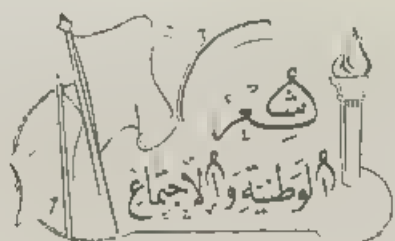 شِعر
الوَطنيّة وَالاجتماع